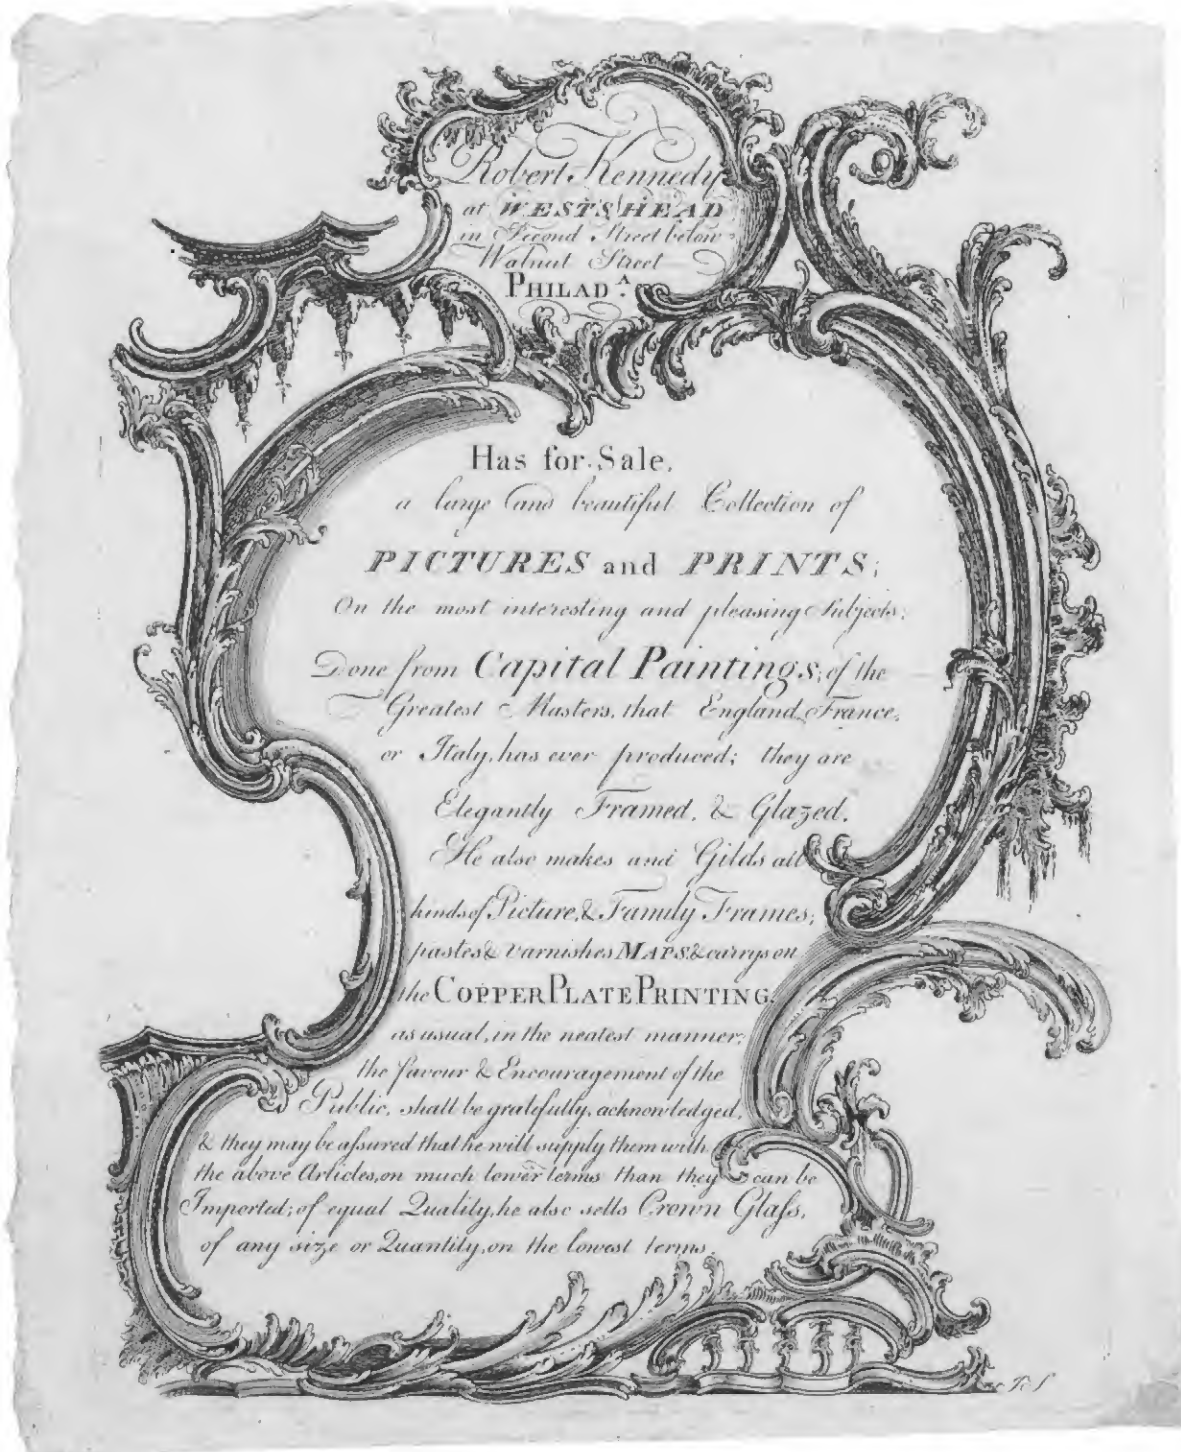 Robert Kennedy
at WESTS HEAD
in Second Street below
Walnut Street
PHILADᴬ.
Has for Sale,
a large and beautiful Collection of
PICTURES and PRINTS;
On the most interesting and pleasing Subjects;
Done from Capital Paintings; of the
Greatest Masters, that England, France,
or Italy, has ever produced; they are
Elegantly Framed, & Glazed.
He also makes and Gilds all
kinds of Picture, & Family Frames;
pastes & varnishes MAPS, & carrys on
the COPPER PLATE PRINTING,
as usual, in the neatest manner;
the favour & Encouragement of the
Public, shall be gratefully, acknowledged,
& they may be aſsured that he will supply them with
the above Articles, on much lower terms than they can be
Imported; of equal Quality, he also sells Crown Glaſs,
of any size or Quantity, on the lowest terms.